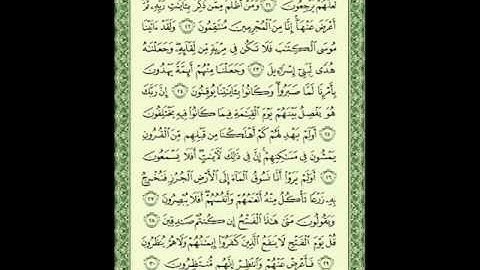 لَعَلَّهُمْ يَرْجِعُونَ ٢١ وَمَنْ أَظْلَمُ مِمَّن ذُكِّرَ بِـَٔايَـٰتِ رَبِّهِۦ ثُمَّ
أَعْرَضَ عَنْهَآ ۚ إِنَّا مِنَ ٱلْمُجْرِمِينَ مُنتَقِمُونَ ٢٢ وَلَقَدْ ءَاتَيْنَا
مُوسَى ٱلْكِتَـٰبَ فَلَا تَكُن فِى مِرْيَةٍ مِّن لِّقَآئِهِۦ ۖ وَجَعَلْنَـٰهُ
هُدًى لِّبَنِىٓ إِسْرَٰٓءِيلَ ٢٣ وَجَعَلْنَا مِنْهُمْ أَئِمَّةً يَهْدُونَ
بِأَمْرِنَا لَمَّا صَبَرُوا۟ ۖ وَكَانُوا۟ بِـَٔايَـٰتِنَا يُوقِنُونَ ٢٤ إِنَّ رَبَّكَ
هُوَ يَفْصِلُ بَيْنَهُمْ يَوْمَ ٱلْقِيَـٰمَةِ فِيمَا كَانُوا۟ فِيهِ يَخْتَلِفُونَ
٢٥ أَوَلَمْ يَهْدِ لَهُمْ كَمْ أَهْلَكْنَا مِن قَبْلِهِم مِّنَ ٱلْقُرُونِ
يَمْشُونَ فِى مَسَـٰكِنِهِمْ ۚ إِنَّ فِى ذَٰلِكَ لَـَٔايَـٰتٍ ۖ أَفَلَا يَسْمَعُونَ
٢٦ أَوَلَمْ يَرَوْا۟ أَنَّا نَسُوقُ ٱلْمَآءَ إِلَى ٱلْأَرْضِ ٱلْجُرُزِ فَنُخْرِجُ
بِهِۦ زَرْعًا تَأْكُلُ مِنْهُ أَنْعَـٰمُهُمْ وَأَنفُسُهُمْ ۖ أَفَلَا يُبْصِرُونَ ٢٧
وَيَقُولُونَ مَتَىٰ هَـٰذَا ٱلْفَتْحُ إِن كُنتُمْ صَـٰدِقِينَ ٢٨
قُلْ يَوْمَ ٱلْفَتْحِ لَا يَنفَعُ ٱلَّذِينَ كَفَرُوٓا۟ إِيمَـٰنُهُمْ وَلَا هُمْ يُنظَرُونَ
٢٩ فَأَعْرِضْ عَنْهُمْ وَٱنتَظِرْ إِنَّهُم مُّنتَظِرُونَ ٣٠